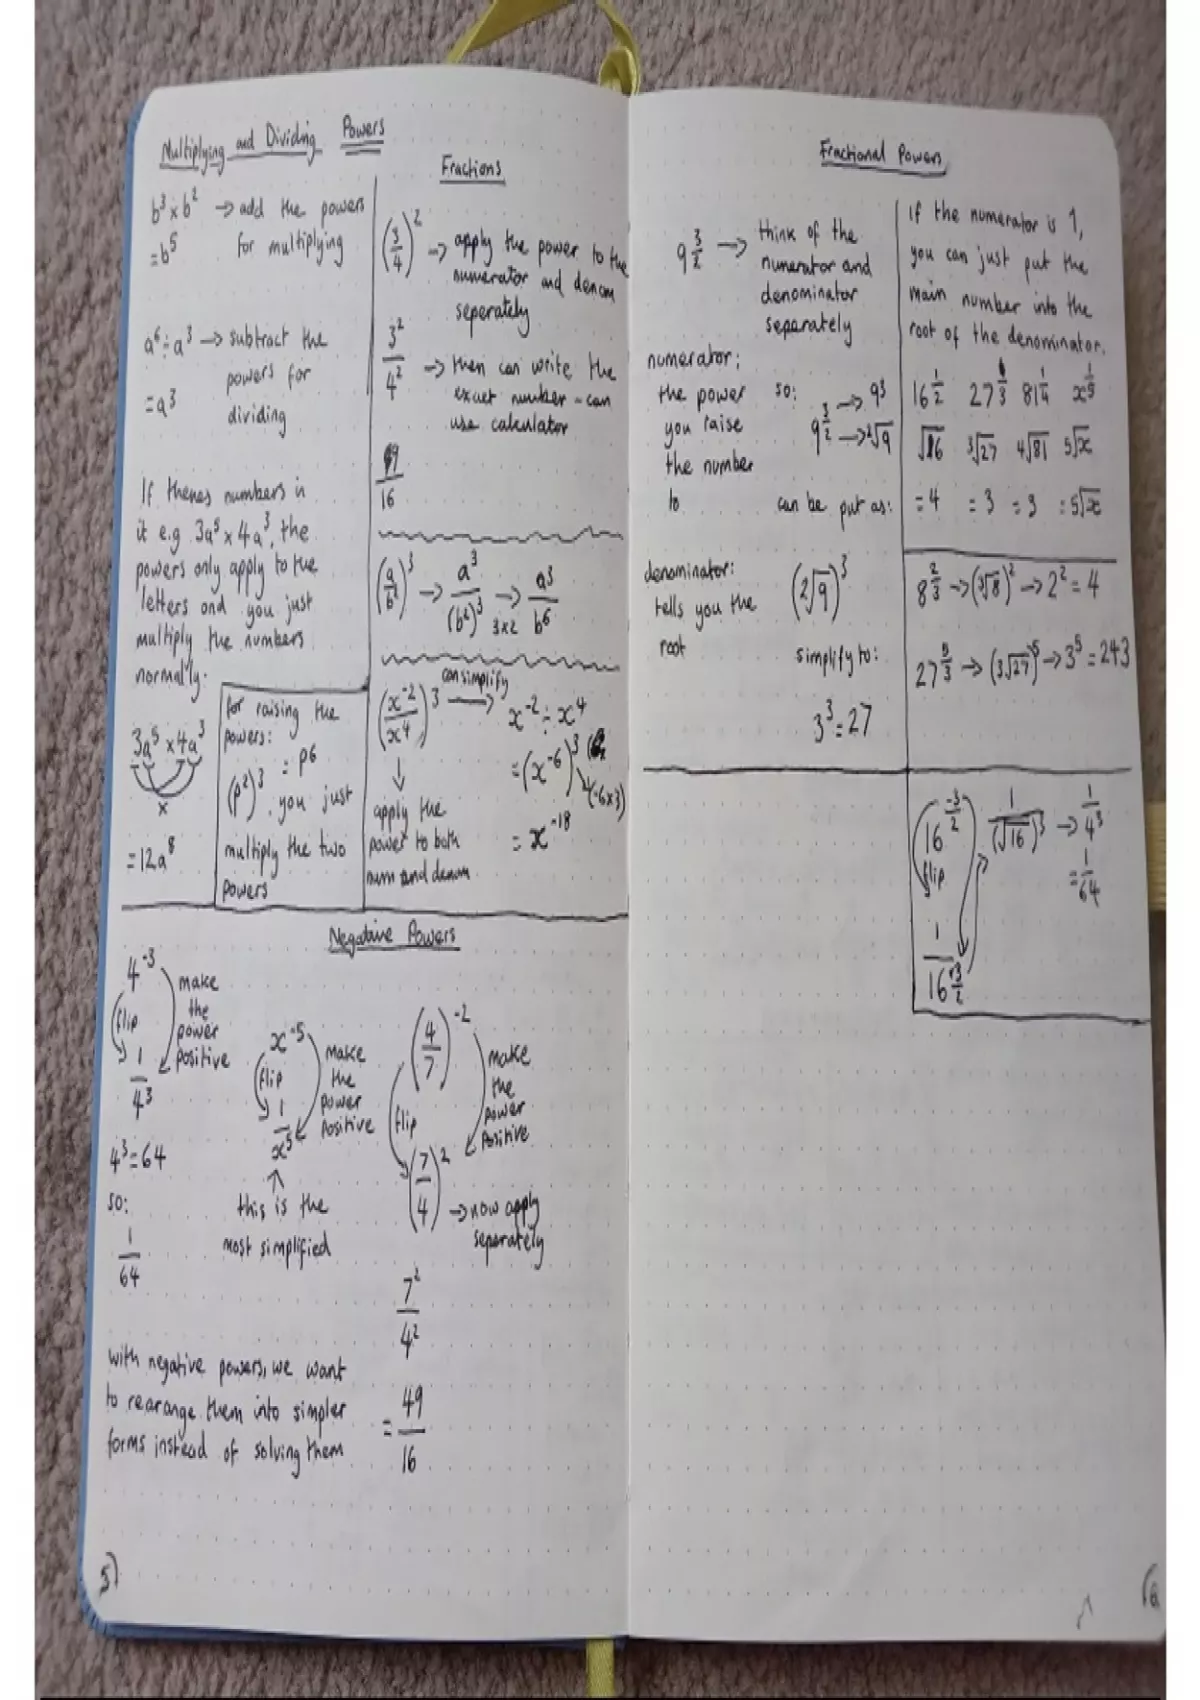 Multiplying and Dividing Powers
b³ × b² → add the powers
= b⁵ for multiplying
a⁶ ÷ a³ → subtract the
powers for
= a³
dividing
If theres numbers in
it e.g 3a⁵ × 4a³, the
powers only apply to the
letters and you just
multiply the numbers
normally.
3a⁵ × 4a³
×
= 12a⁸
for raising the
powers:
(p²)³ = p6
you just
multiply the two
powers
Fractions
(3/4)² → apply the power to the
numerator and denom
seperately
3²/4² → then can write the
exact number - can
use calculator
9/16
(a/b²)³ → a³/(b²)³ → a³/b⁶
3×2
can simplify
(x⁻²/x⁴)³ → x⁻² ÷ x⁴
= (x⁻⁶)³
(-6×3)
= x⁻¹⁸
↓
apply the
power to both
num and denom
Negative Powers
4⁻³
flip
make
the
power
positive
1/4³
4³ = 64
so:
1/64
x⁻⁵
flip
make
the
power
positive
1/x⁵
↑
this is the
most simplified
(4/7)⁻²
flip
make
the
power
positive
(7/4)² → now apply
seperately
7²/4²
= 49/16
with negative powers, we want
to rearange them into simpler
forms instead of solving them
5)
Fractional Powers
9 3/2 → think of the
numerator and
denominator
seperately
numerator:
the power
you raise
the number
to
so:
9 3/2 → 9³
→ ²√9
can be put as:
denominator:
tells you the
root
(2√9)³
simplify to:
3³ = 27
if the numerator is 1,
you can just put the
main number into the
root of the denominator.
16 1/2 27 1/3 81 1/4 x 1/5
√16 3√27 4√81 5√x
= 4 = 3 = 3 = 5√x
8 2/3 → (3√8)² → 2² = 4
27 5/3 → (3√27)⁵ → 3⁵ = 243
16 -3/2
flip
1/16 +3/2
1/(√16)³ → 1/4³
= 1/64
(6